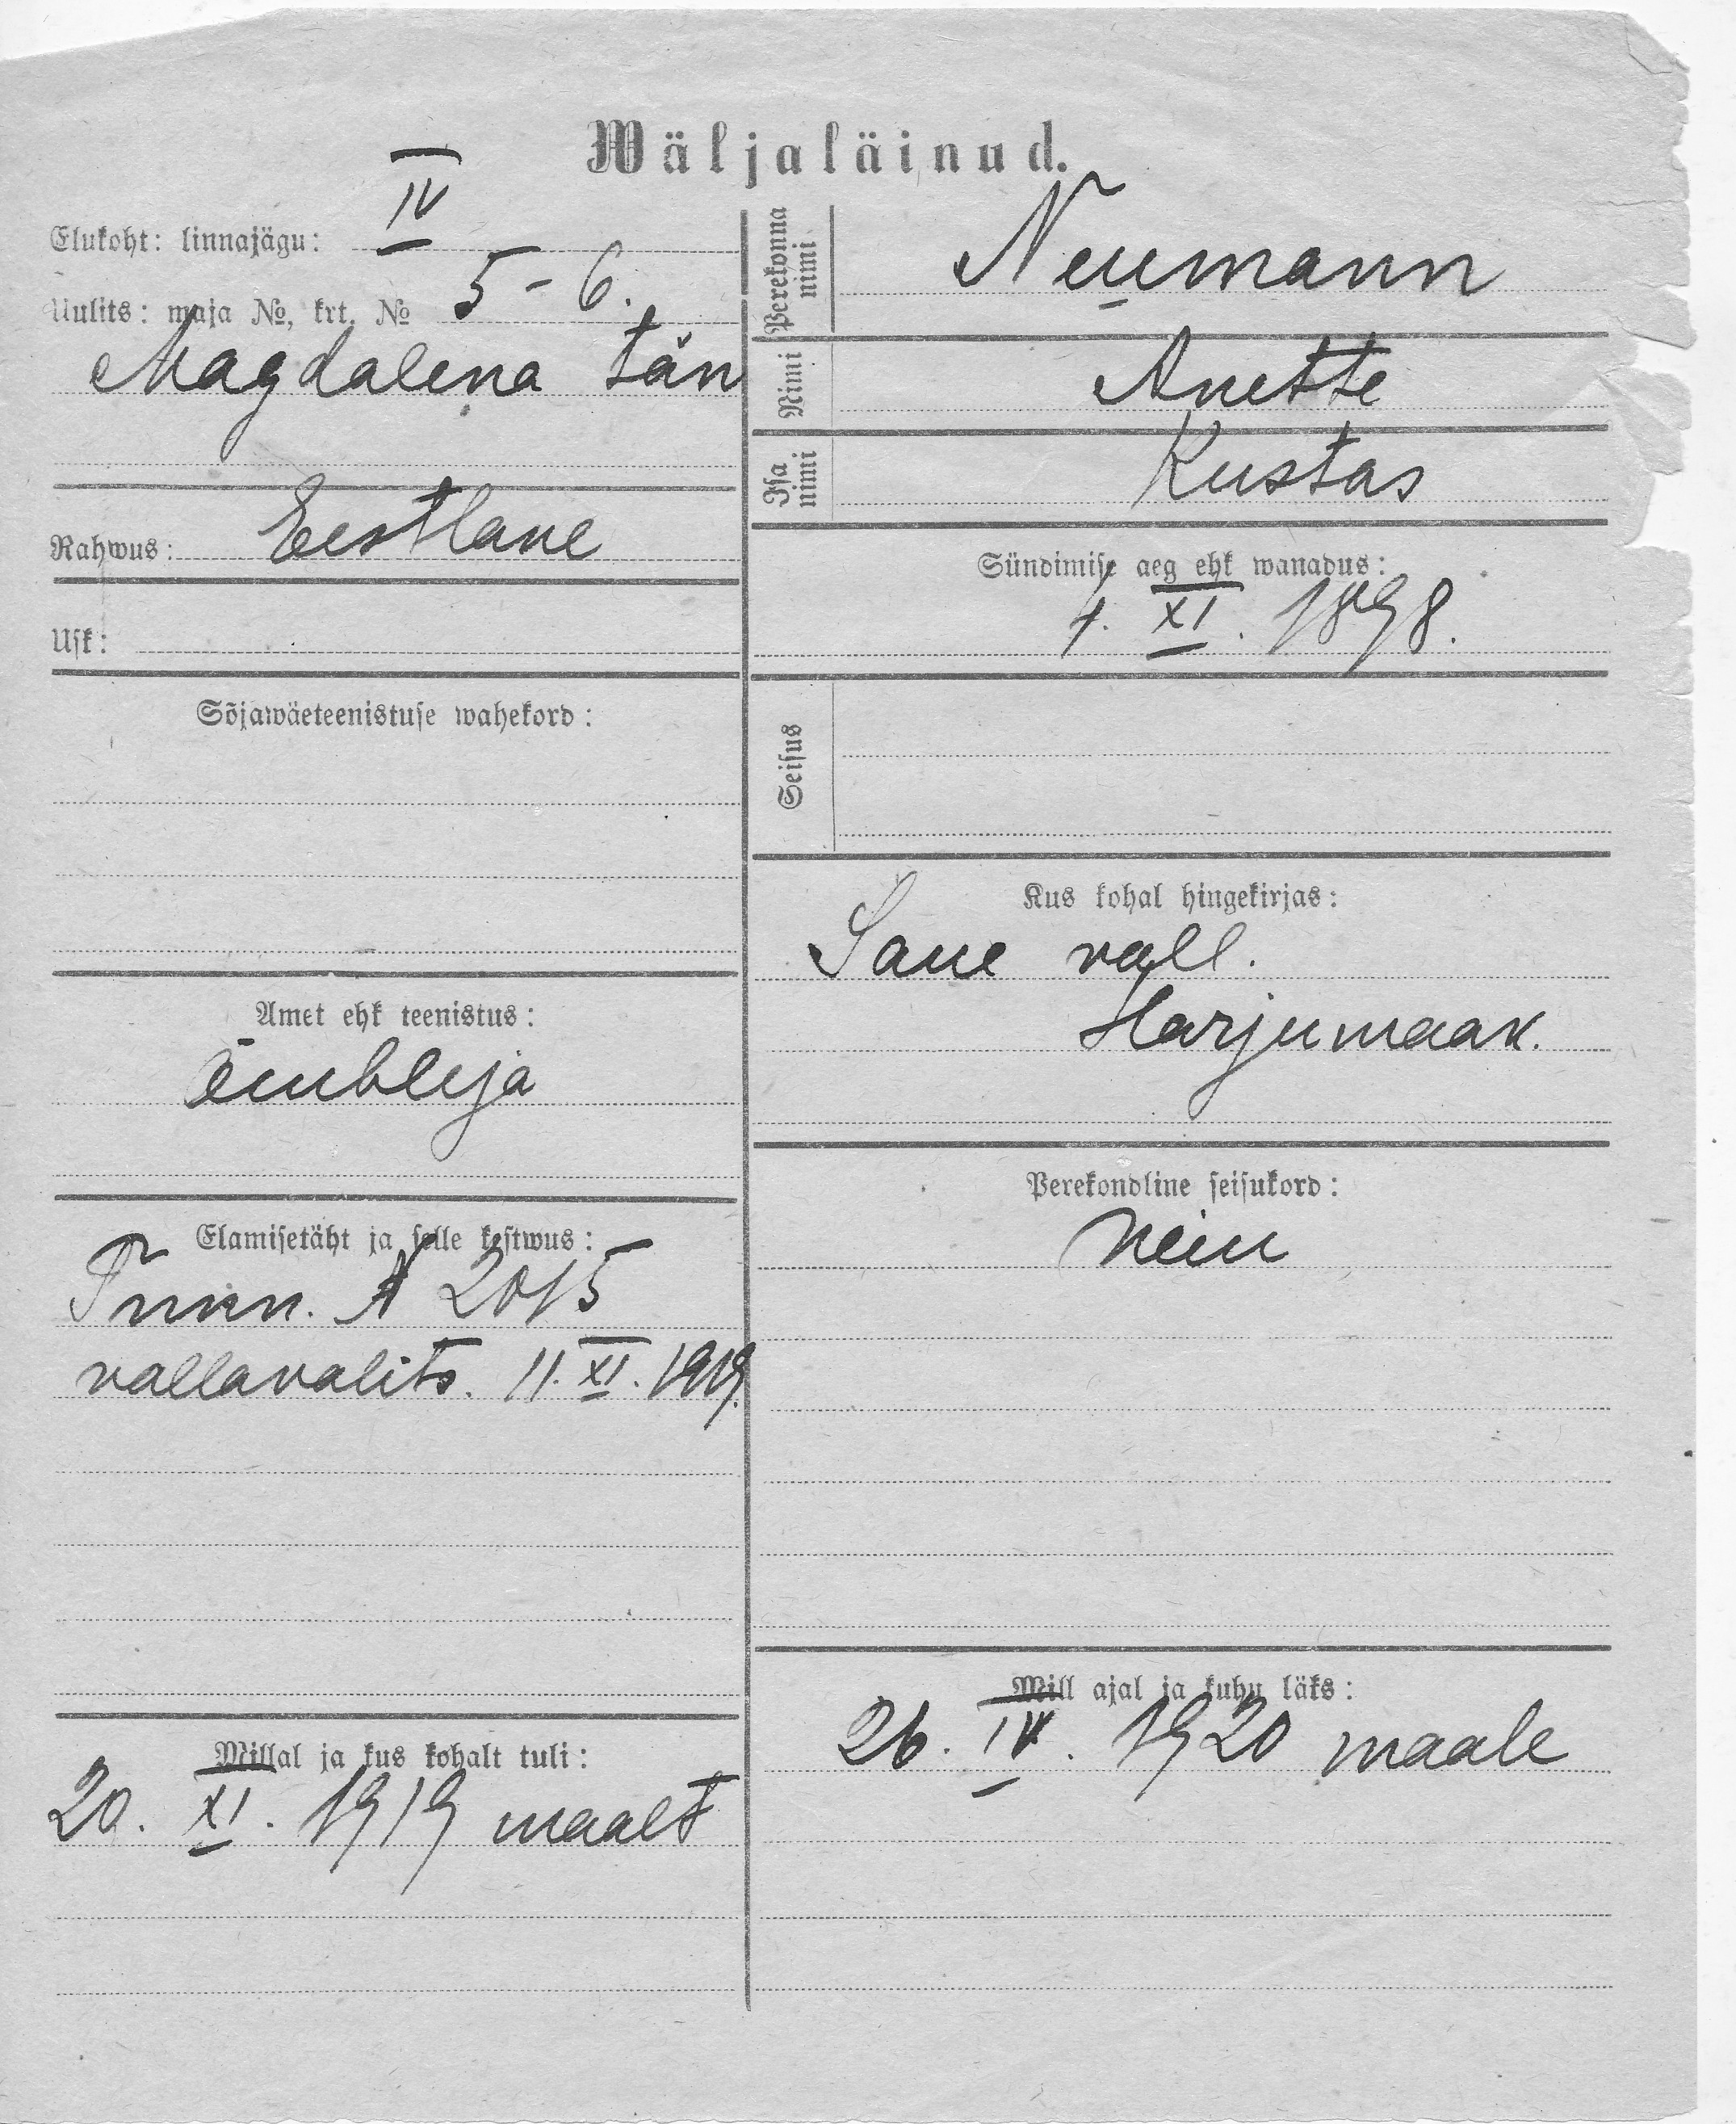 Wäljaläinud.
Elukoht: linnajägu: IV
Uulits: maja №, krt. № 5 - 6.
Magdalena tän
Rahwus: Eestlane
Usk:
Sõjawäeteenistuse wahekord:
Amet ehk teenistus:
õmbleja
Elamisetäht ja selle kestwus:
Tunn. № 2015
vallavalits. 11. XI. 1919.
Millal ja kus kohalt tuli:
20. XI. 1919 maalt
Perekonna nimi Neumann
Nimi Anette
Isa nimi Kustas
Sündimise aeg ehk wanadus:
XI. 1898.
Seisus
Kus kohal hingekirjas:
Saue vall.
Harjumaak.
Perekondline seisukord:
Neiu
Mill ajal ja kuhu läks:
26. IV. 1920 maale